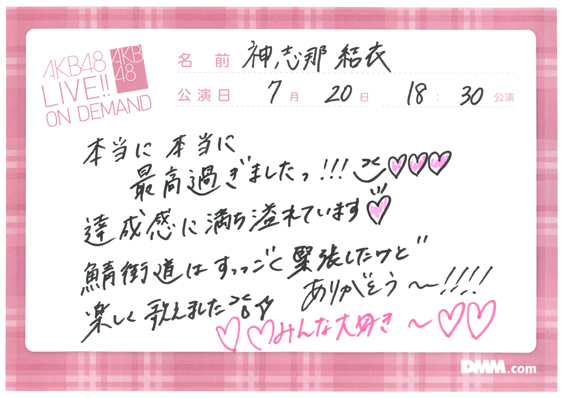 AKB48
LIVE!!
ON DEMAND
AKB
48
名前 神志那 結衣
公演日 7月 20日 18:30公演
本当に 本当に
最高過ぎましたっ!!!
達成感に満ち溢れています
鯖街道はすっっごく緊張したけど
楽しく歌えました ありがとう〜!!!!
みんな大好き〜
DMM.com